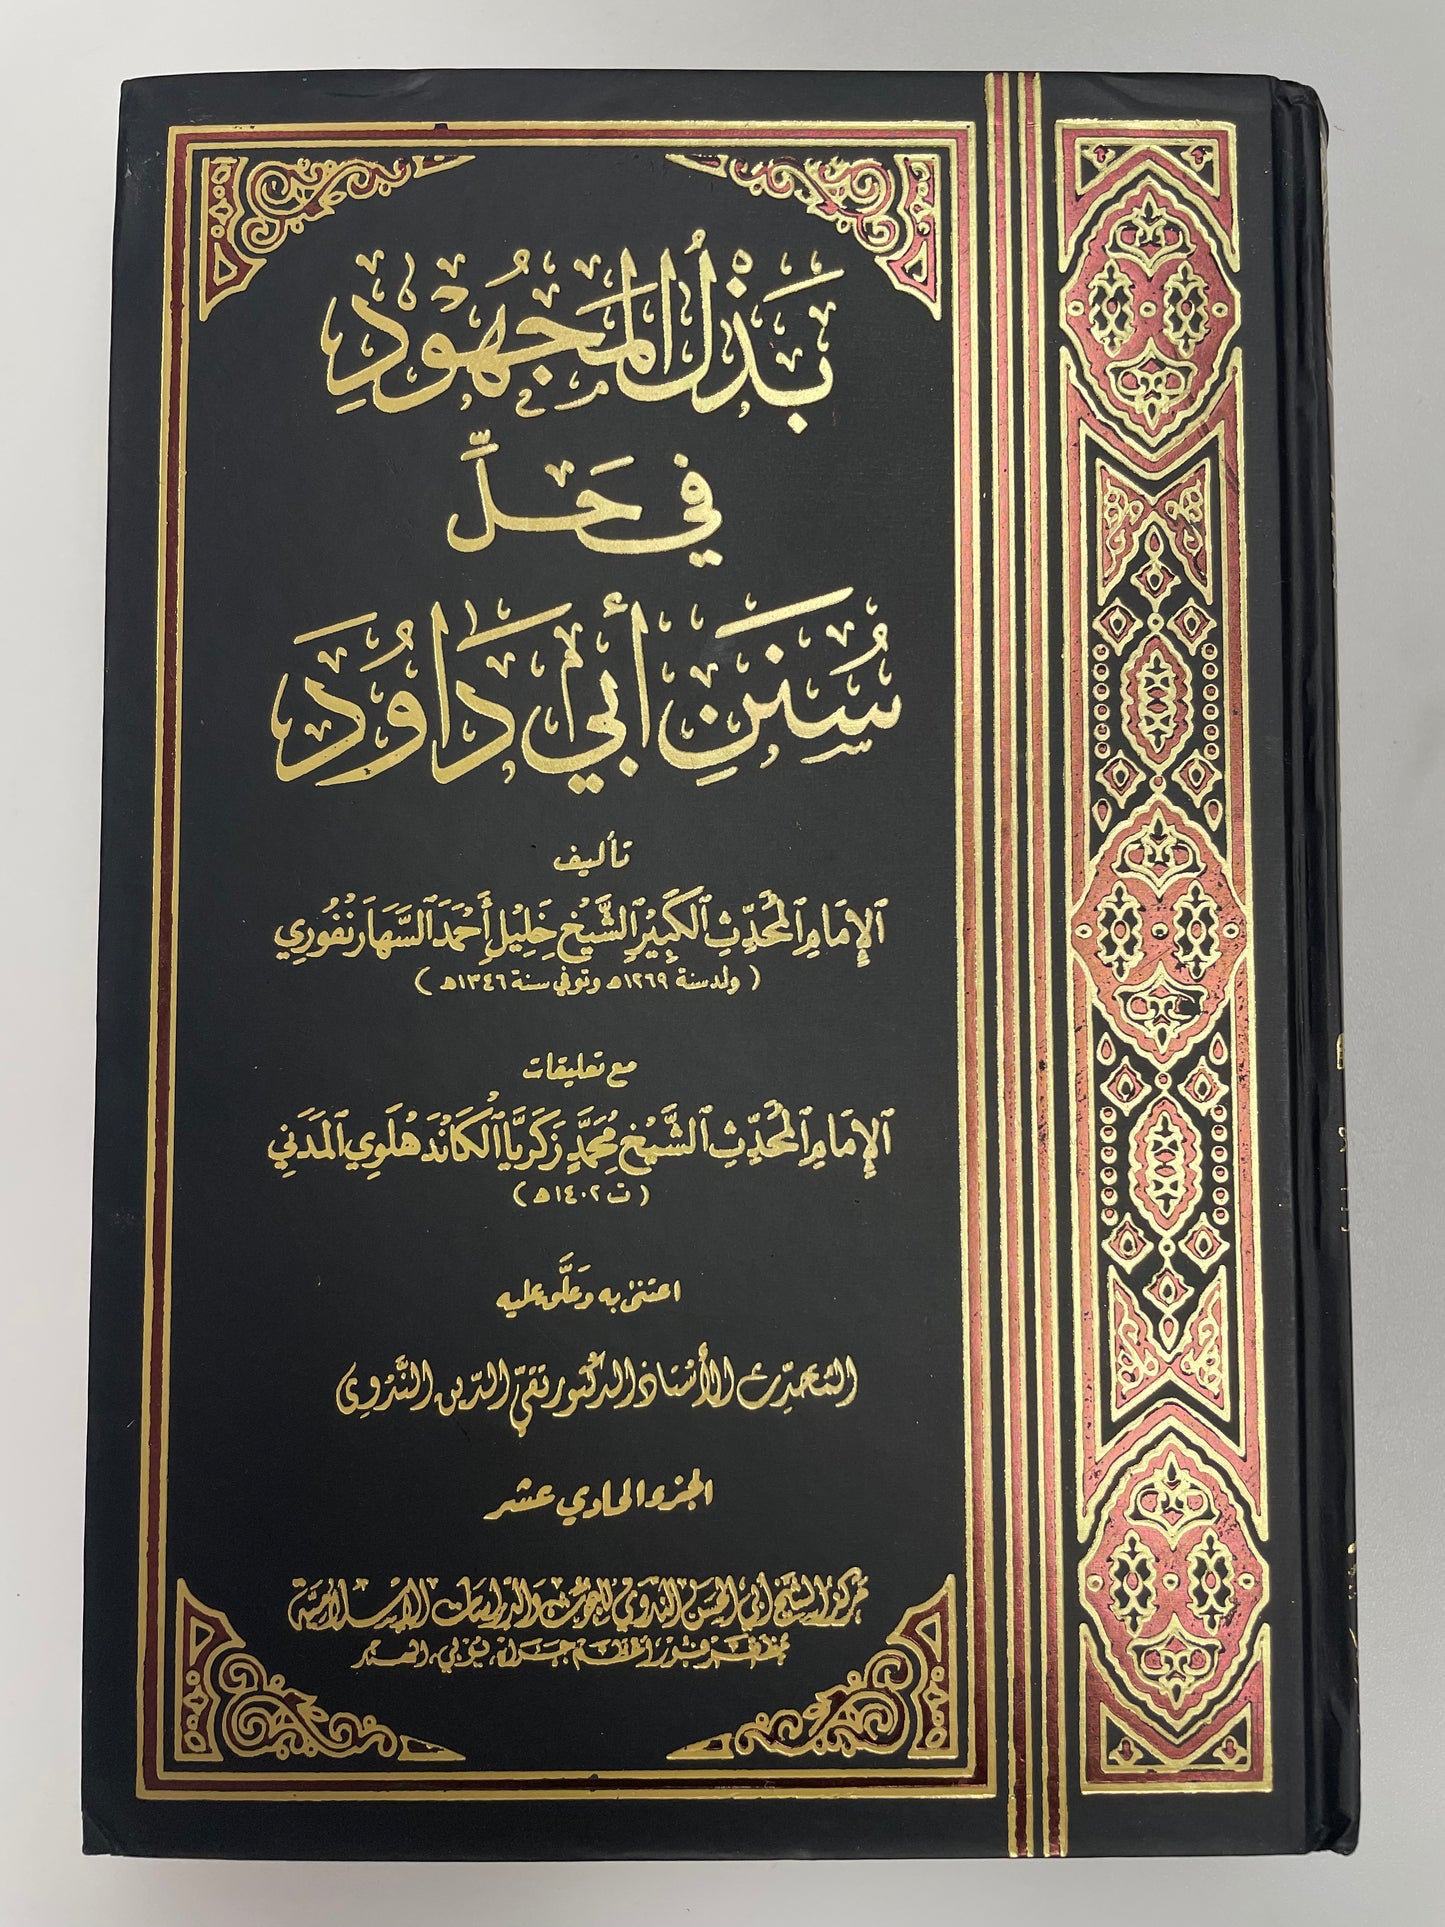 بَذْلُ المَجْهُودِ
فِي حَلِّ
سُنَنِ أَبِي دَاوُدَ
تأليف
الإِمَامِ المُحَدِّثِ الكَبِيْرِ الشَّيْخِ خَلِيْل أَحْمَد السَّهَارَنْفُورِي
( ولد سنة ١٢٦٩هـ وتوفي سنة ١٣٤٦هـ )
مع تعليقات
الإِمَامِ المُحَدِّثِ الشَّيْخِ مُحَمَّد زَكَرِيَّا الكَانْدَهْلَوِي المَدَنِي
( ت ١٤٠٢هـ )
اعتنىٰ به وعَلَّق عليه
المُحَدِّث الأُسْتَاذ الدكتور تَقِيّ الدِّين النَّدْوِي
الجزء الحادي عشر
مركز الشيخ أبي الحسن الندوي للبحوث والدراسات الإسلامية
مظفر فور، أعظم جراه، يوبي، الهند